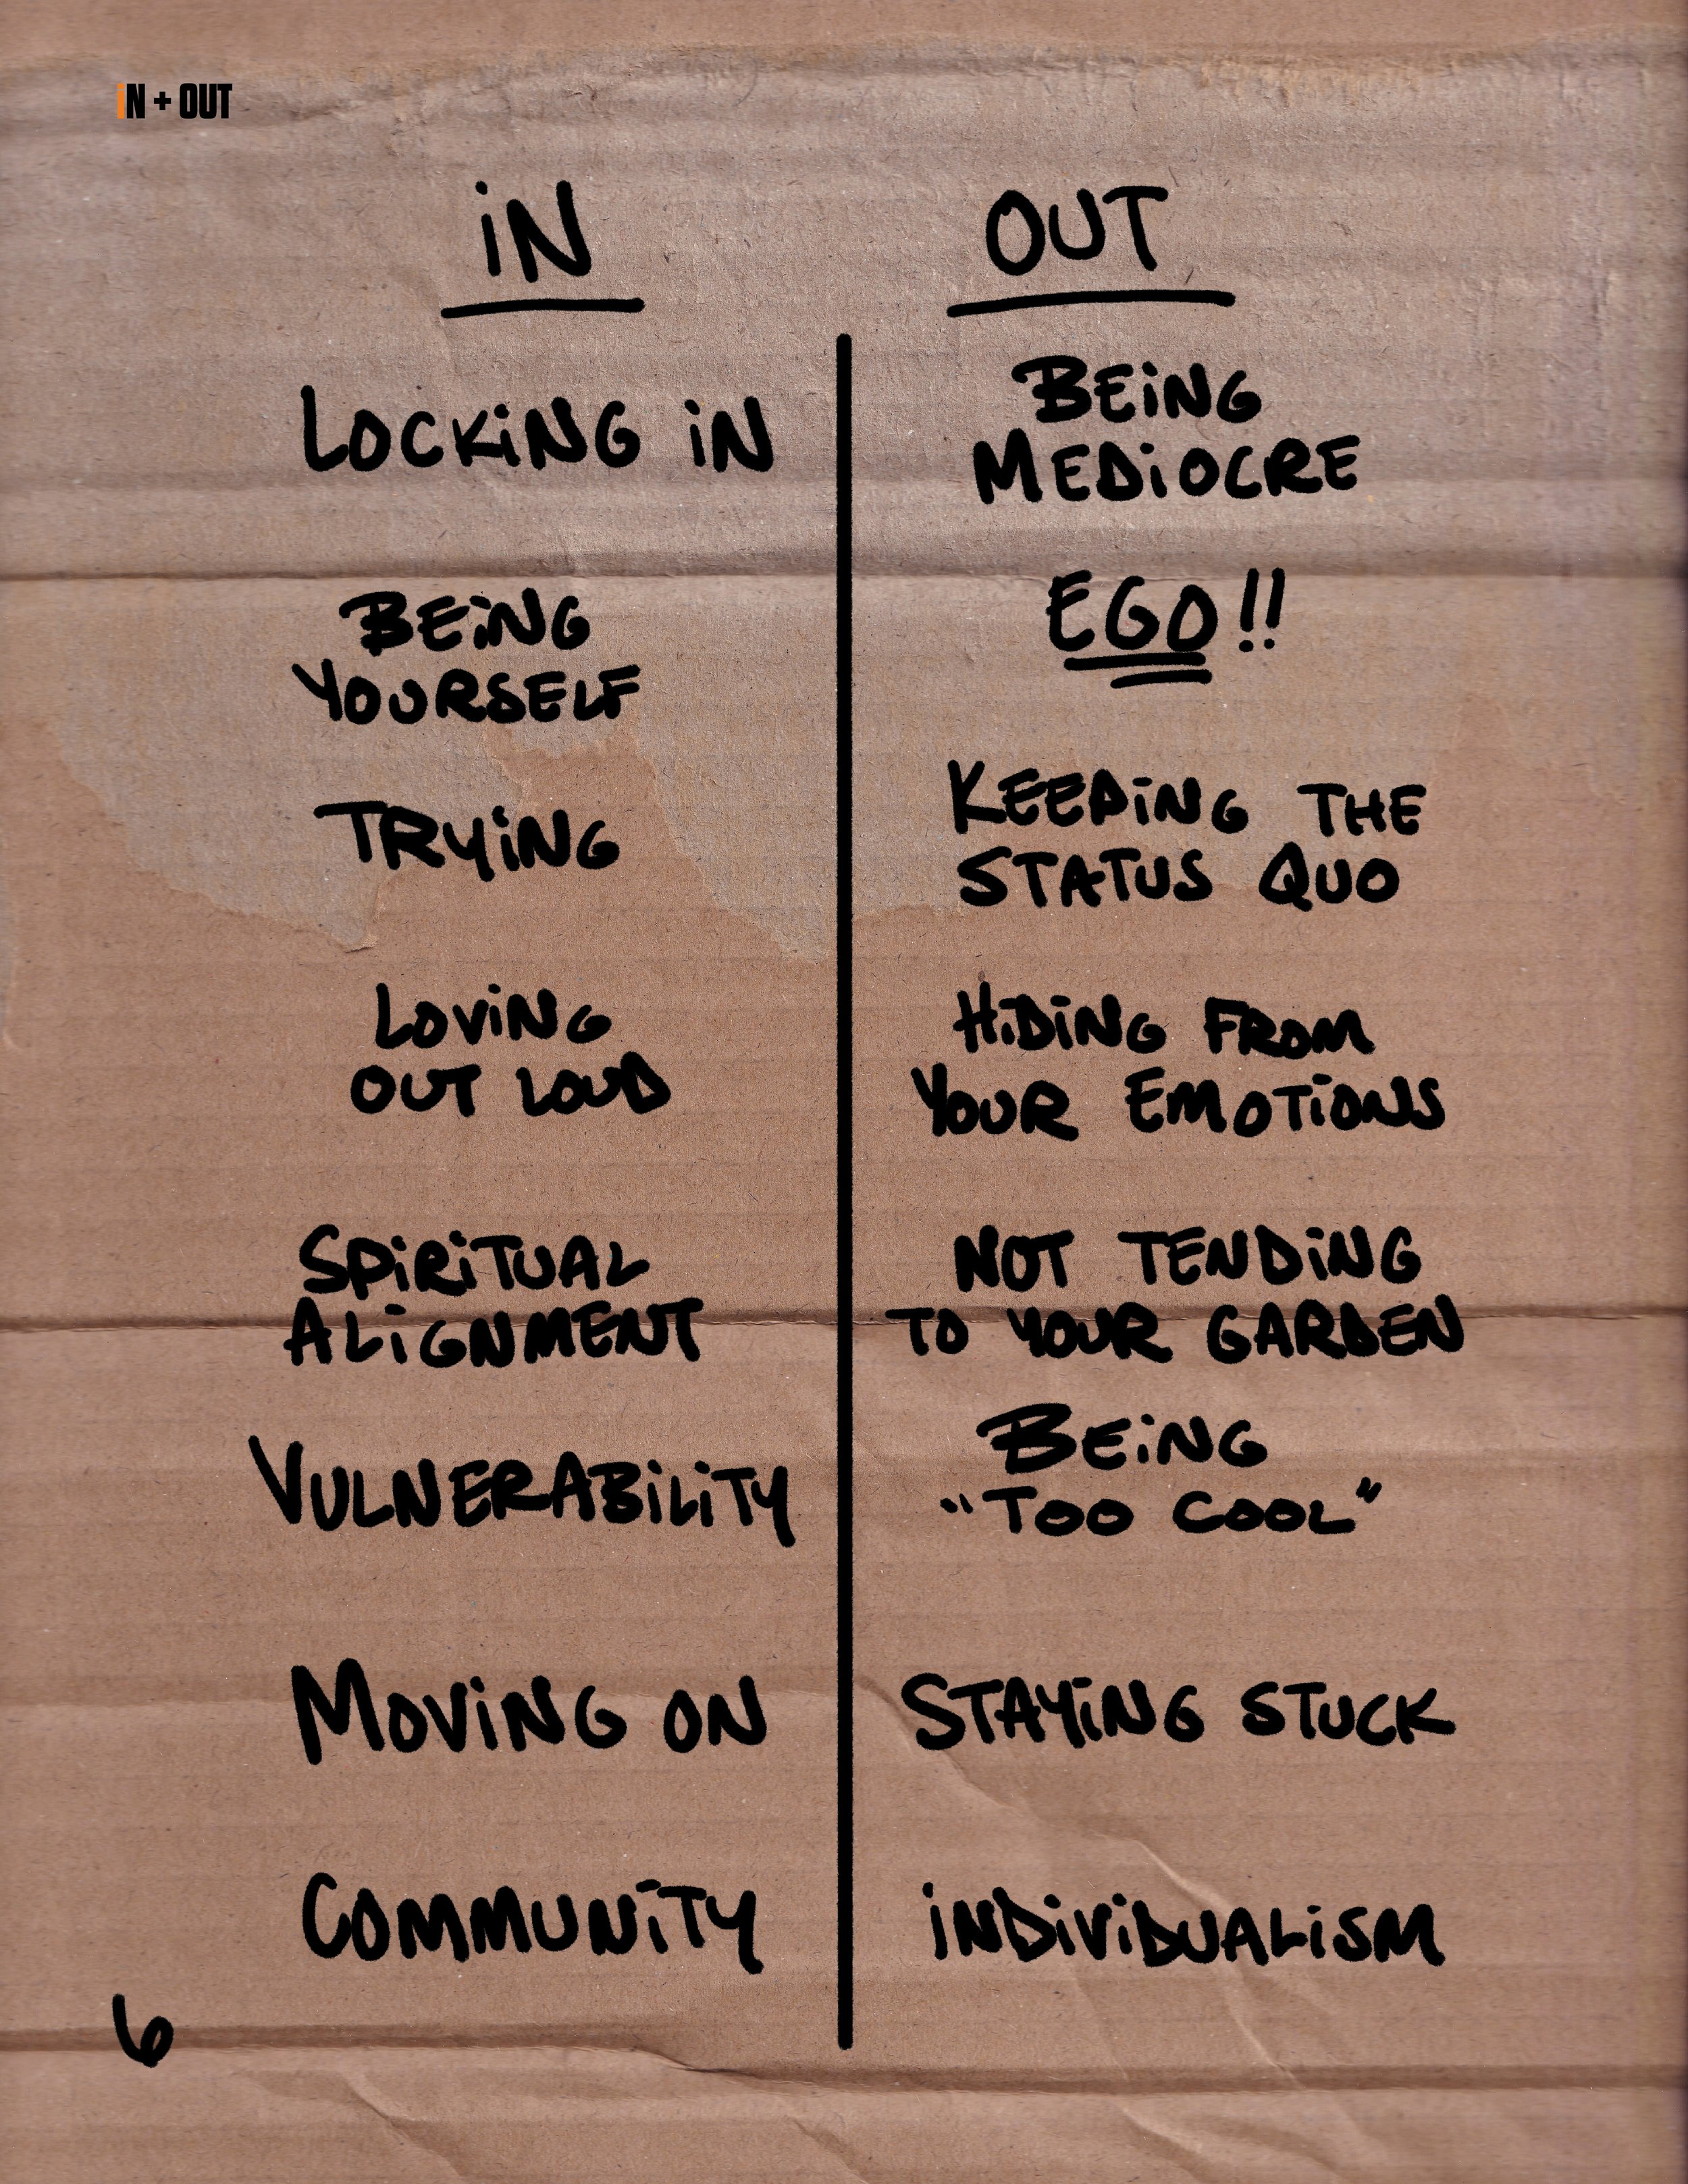 iN + OUT
iN
OUT
LOCKiNG iN
BEiNG
MEDiOCRE
BEiNG
YOURSELF
EGO!!
TRYiNG
KEEPiNG THE
STATUS QUO
LOViNG
OUT LOUD
HiDiNG FROM
YOUR EMOTiONS
SPiRiTUAL
ALiGNMENT
NOT TENDiNG
TO YOUR GARDEN
VULNERABiLiTY
BEiNG
"TOO COOL"
MOViNG ON
STAYiNG STUCK
COMMUNiTY
iNDiViDUALiSM
6